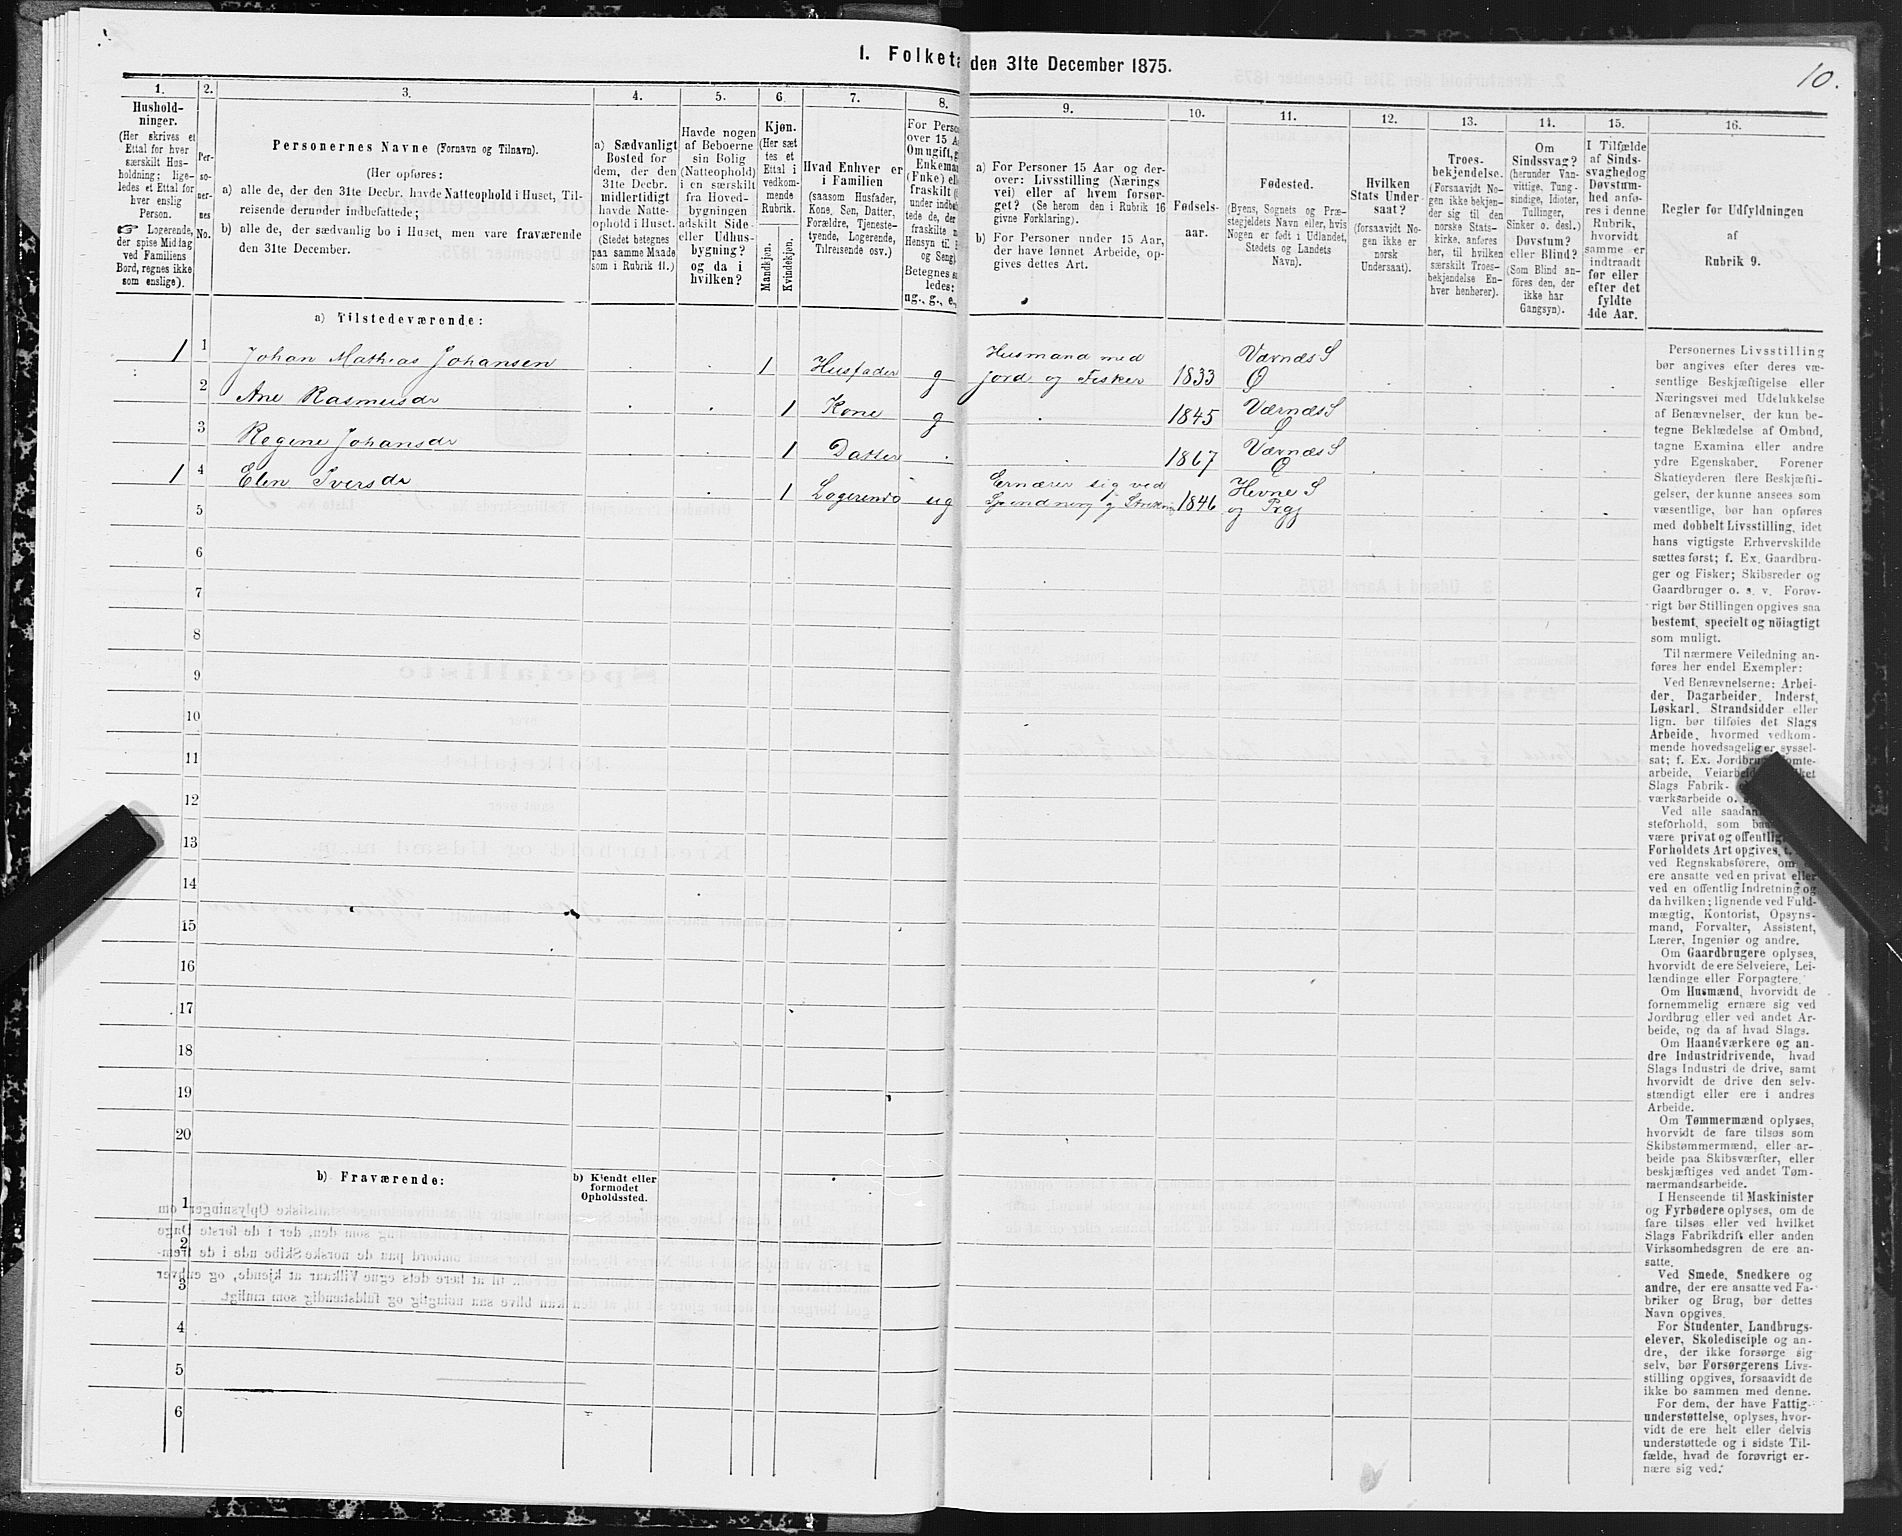 1. Folketa den 31te December 1875.
10.
1. 2. 3. 4. 5. 6. 7. 8. 9. 10. 11. 12. 13. 14. 15. 16.
Hushold-
ninger.
(Her skrives et
Ettal for hver
særskilt Hus-
holdning; lige-
ledes et Ettal for
hver enslig
Person.
☞ Logerende,
der spise Middag
ved Familiens
Bord, regnes ikke
som enslige).
Per-
so-
ner-
nes
No.
Personernes Navne (Fornavn og Tilnavn).
(Her opføres:
a) alle de, der den 31te Decbr. havde Natteophold i Huset, Til-
reisende derunder indbefattede;
b) alle de, der sædvanlig bo i Huset, men vare fraværende
den 31te December.
a) Sædvanligt
Bosted for
dem, der den
31te Decbr.
midlertidigt
havde Natte-
ophold i Huset.
(Stedet betegnes
paa samme Maade
som i Rubrik 11.)
Havde nogen
af Beboerne
sin Bolig
(Natteophold)
i en særskilt
fra Hoved-
bygningen
adskilt Side-
eller Udhus-
bygning?
og da i
hvilken?
Kjøn.
(Her sæt
tes et
Ettal i
vedkom-
mende
Rubrik.
Mandkjøn.
Kvindekjøn.
Hvad Enhver er
i Familien
(saasom Husfader,
Kone, Søn, Datter,
Forældre, Tjeneste-
tyende, Logerende,
Tilreisende osv.)
For Perso
over 15 A
Om ugift, g
Enkema
(Enke) ell
fraskilt (
under indbe
tede de, der
fraskilte n
Hensyn til B
og Seng).
Betegnes s
ledes:
ug., g., e.,
a) For Personer 15 Aar og der-
over: Livsstilling (Nærings
vei) eller af hvem forsør-
get? (Se herom den i Rubrik 16
givne Forklaring).
b) For Personer under 15 Aar,
der have lønnet Arbeide, op-
gives dettes Art.
Fødsels-
aar.
Fødested.
(Byens, Sognets og Præ-
stegjeldets Navn eller, hvis
Nogen er født i Udlandet,
Stedets og Landets
Navn).
Hvilken
Stats Under-
saat?
(forsaavidt No-
gen ikke er
norsk
Undersaat).
Troes-
bekjendelse.
(Forsaavidt No-
gen ikke bekjen-
der sig til den
norske Stats-
kirke, anføres
her, til hvilken
særskilt Troes-
bekjendelse En-
hver henhører).
Om
Sindssvag?
(herunder Van-
vittige, Tung-
sindige, Idioter,
Tullinger,
Sinker o. desl.)
Døvstum?
eller Blind?
(Som Blind an-
føres den, der
ikke har
Gangsyn).
I Tilfælde
af Sinds-
svaghed og
Døvstum-
hed anfø-
res i denne
Rubrik,
hvorvidt
samme er
indtraadt
før eller
efter det
fyldte
4de Aar.
Regler for Udfyldningen
af
Rubrik 9.
a) Tilstedeværende:
1 1 Johan Mathias Johansen 1 Husfader g Husmand med Jord og Fisker 1833 Værnæs S Ø
2 Ane Rasmusdr 1 Kone g 1845 Værnæs S Ø
3 Regine Johansdr 1 Datter 1867 Værnæs S Ø
1 4 Elen Iversdr 1 Logerende ug Ernærer sig ved Spinding og Strikning 1846 Hevne S og Prgj
5
6
7
8
9
10
11
12
13
14
15
16
17
18
19
20
b) Fraværende:
b) Kjendt eller
formodet
Opholdssted.
1
2
3
4
5
6
Personernes Livsstilling
bør angives efter deres væ-
sentlige Beskjæftigelse eller
Næringsvei med Udelukkelse
af Benævnelser, der kun be-
tegne Beklædelse af Ombud,
tagne Examina eller andre
ydre Egenskaber. Forener
Skatteyderen flere Beskjæfti-
gelser, der kunne ansees som
væsentlige, bør han opføres
med dobbelt Livsstilling, idet
hans vigtigste Erhvervskilde
sættes først; f. Ex. Gaardbru-
ger og Fisker; Skibsreder og
Gaardbruger o. s. v. Forøv-
rigt bør Stillingen opgives saa
bestemt, specielt og nöiagtigt
som muligt.
Til nærmere Veiledning an-
føres her endel Exempler:
Ved Benævnelserne: Arbei-
der, Dagarbeider, Inderst,
Løskarl, Strandsidder eller
lign. bør tilføies det Slags
Arbeide, hvormed vedkom-
mende hovedsagelig er syssel-
sat; f. Ex. Jordbrug, Tomte-
arbeide, Veiarbeide,
Slags Fabrik-
værksarbeide o.
Ved alle saadan
steforhold, som
være privat og offentlig
Forholdets Art opgives,
ved Regnskabsførere, om
ere ansatte ved en privat eller
ved en offentlig Indretning og
da hvilken; lignende ved Fuld-
mægtig, Kontorist, Opsyns-
mand, Forvalter, Assistent,
Lærer, Ingeniør og andre.
Om Gaardbrugere oplyses,
hvorvidt de ere Selveiere, Lei-
lændinge eller Forpagtere.
Om Husmænd, hvorvidt de
fornemmelig ernære sig ved
Jordbrug eller ved andet Ar-
beide, og da af hvad Slags.
Om Haandværkere og an-
dre Industridrivende, hvad
Slags Industri de drive, samt
hvorvidt de drive den selv-
stændigt eller ere i andres
Arbeide.
Om Tømmermænd oplyses,
hvorvidt de fare tilsøs som
Skibstømmermænd, eller ar-
beide paa Skibsværfter, eller
beskjæftiges ved andet Tøm-
mermandsarbeide.
I Henseende til Maskinister
og Fyrbødere oplyses, om de
fare tilsøs eller ved hvilket
Slags Fabrikdrift eller anden
Virksomhedsgren de ere an-
satte.
Ved Smede, Snedkere og
andre, der ere ansatte ved Fa-
briker og Brug, bør dettes
Navn opgives.
For Studenter, Landbrugs-
elever, Skoledisciple og an-
dre, der ikke forsørge sig
selv, bør Forsørgerens Livs-
stilling opgives, forsaavidt de
ikke bo sammen med denne.
For dem, der have Fattig-
understøttelse, oplyses, hvor-
vidt de ere helt eller delvis
understøttede og i sidste Til-
fælde, hvad de forøvrigt er-
nære sig ved.